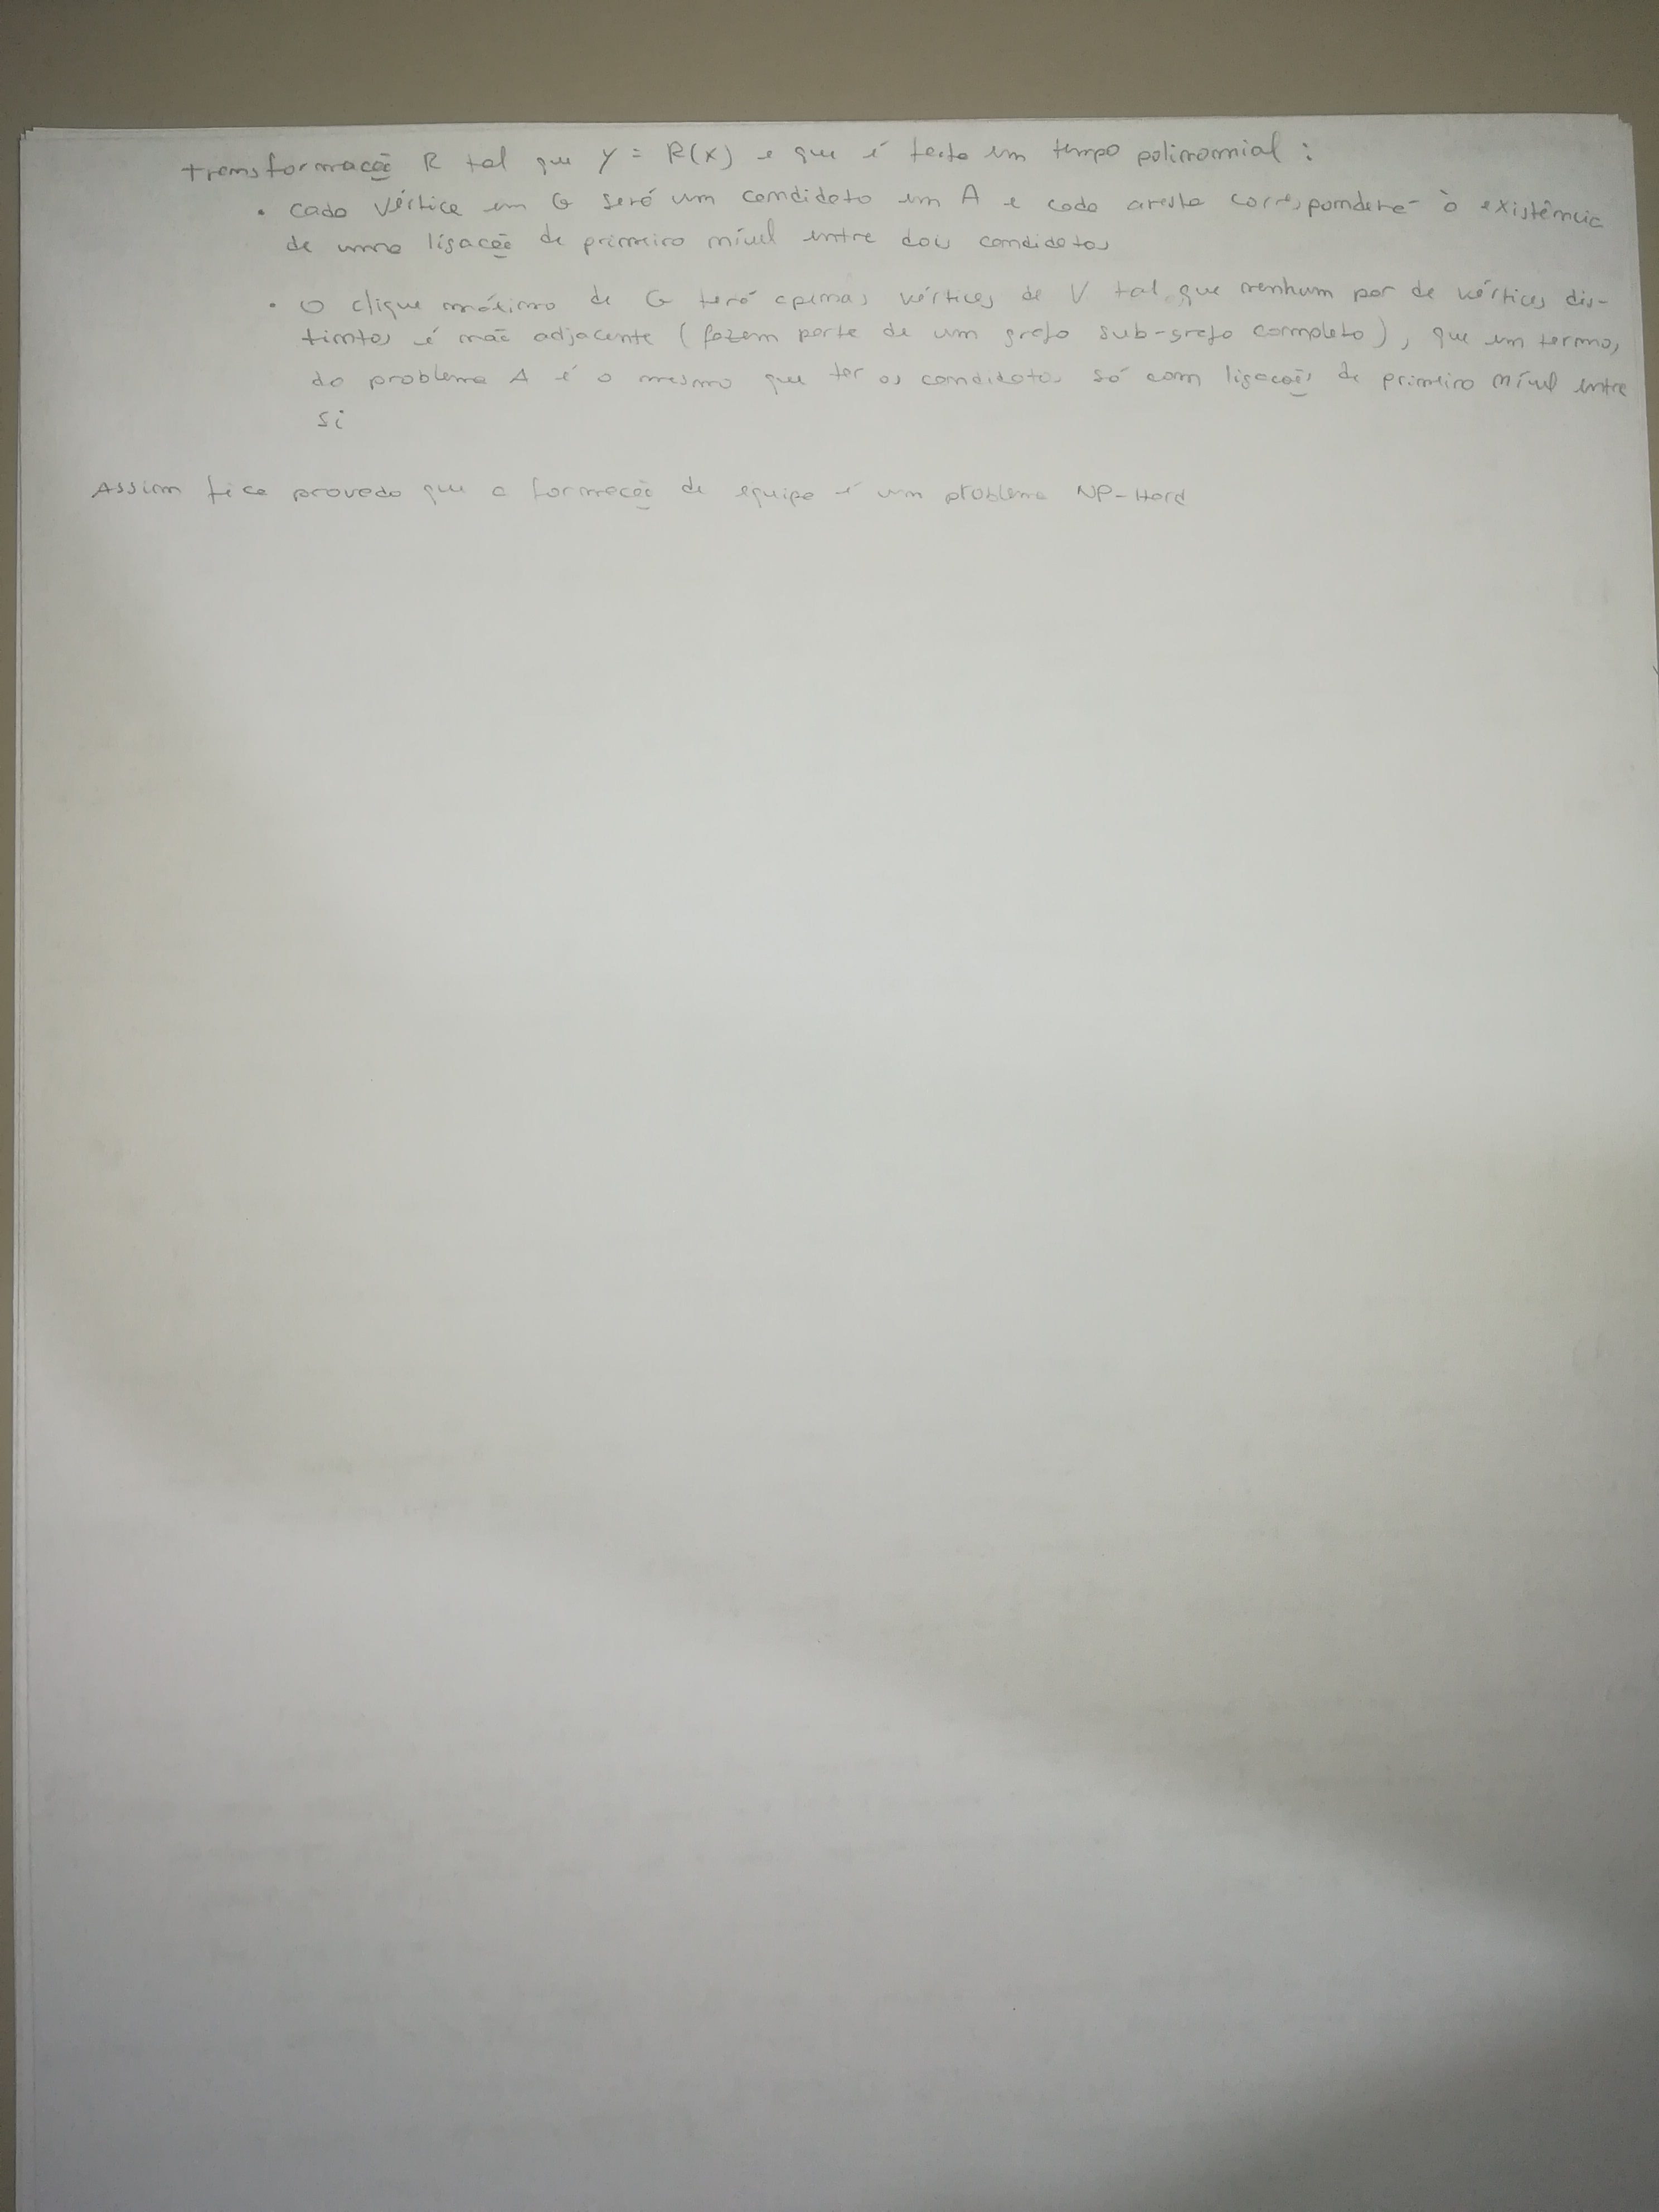 transformação R tal que y = R(x) e que é feita em tempo polinomial :
• cada vértice em G será um candidato em A e cada aresta corresponderá à existência
de uma ligação de primeiro nível entre dois candidatos
• O clique máximo de G terá apenas vértices de V tal que nenhum par de vértices dis-
tintos é não adjacente (fazem parte de um grafo sub-grafo completo), que em termos
do problema A é o mesmo que ter os candidatos só com ligações de primeiro nível entre
si
Assim fica provado que a formação de equipa é um problema NP-Hard